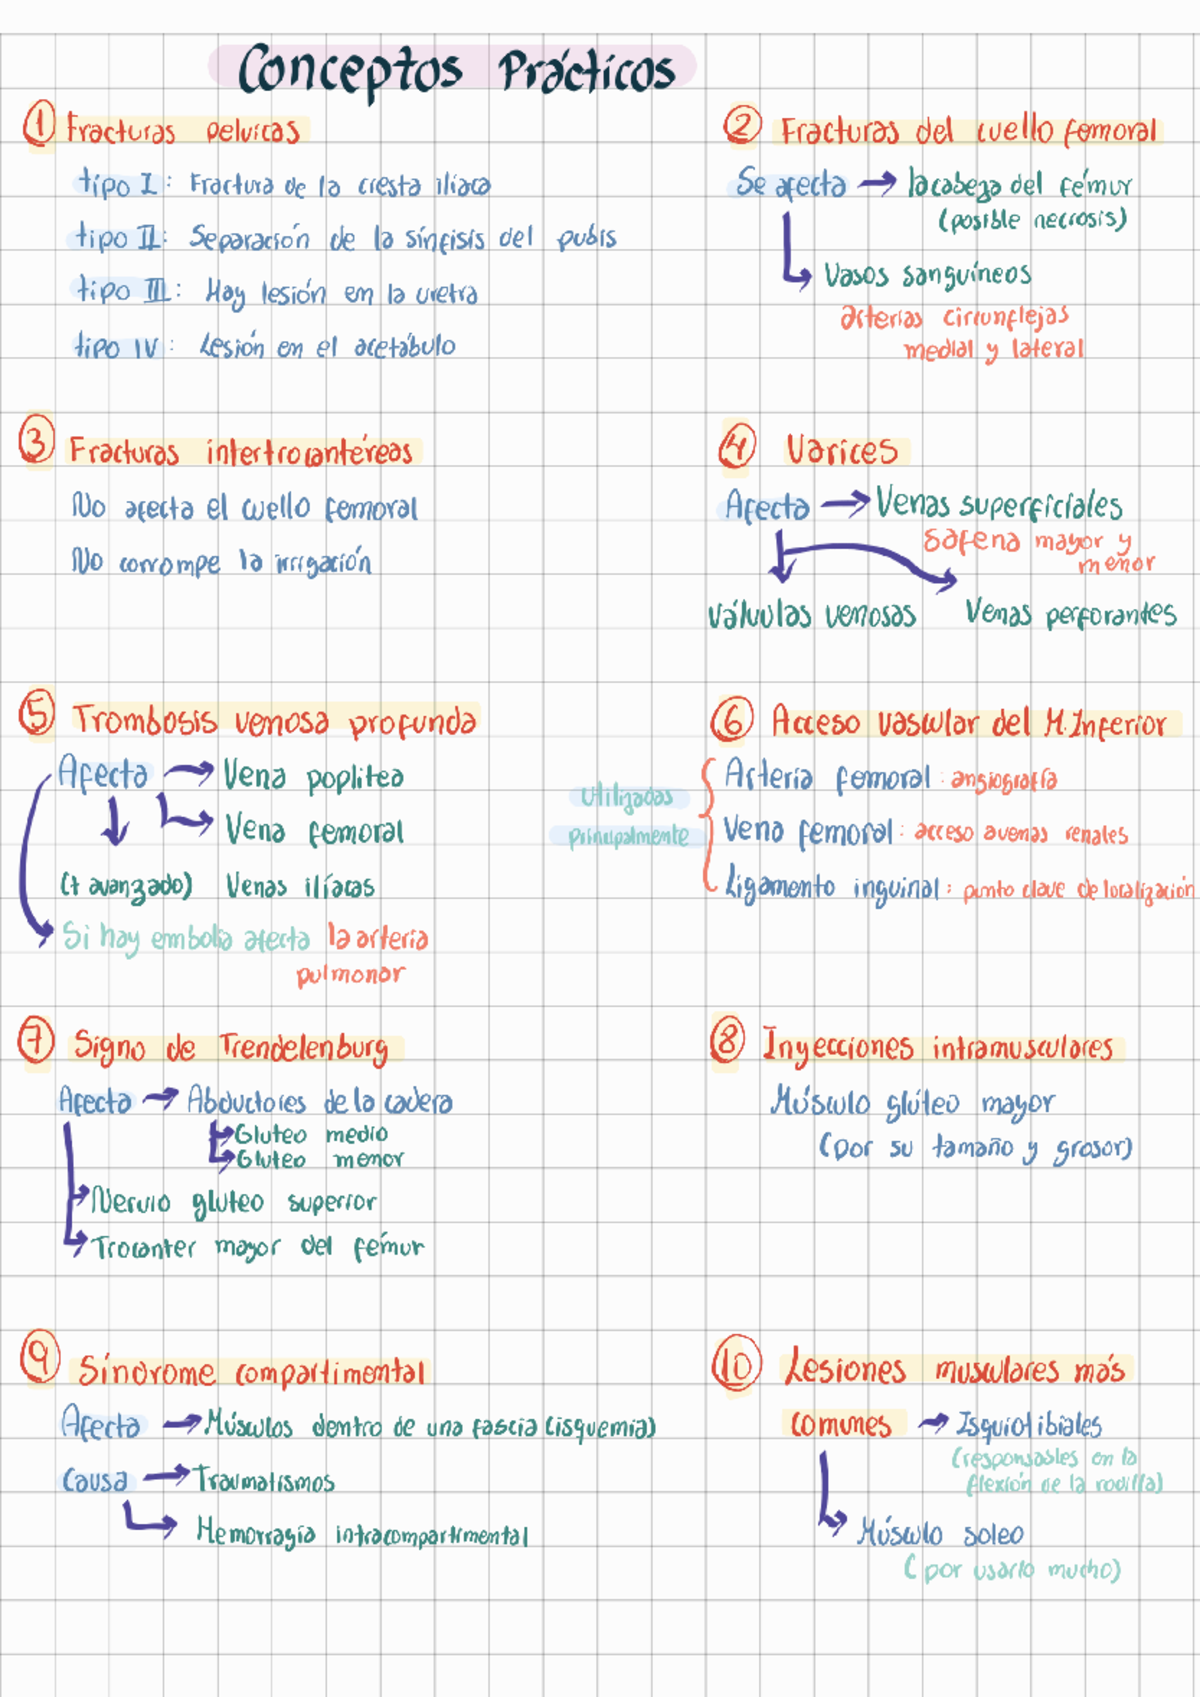 Conceptos Prácticos
① Fracturas pelvicas
tipo I: Fractura de la cresta ilíaca
tipo II: Separación de la sínfisis del pubis
tipo III: Hay lesión en la uretra
tipo IV: Lesión en el acetábulo
② Fracturas del cuello femoral
Se afecta → la cabeza del fémur
(posible necrosis)
Vasos sanguíneos
arterias circunflejas
medial y lateral
③ Fracturas intertrocantéreas
No afecta el cuello femoral
No corrompe la irrigación
④ Varices
Afecta → Venas superficiales
Safena mayor y
menor
Válvulas venosas Venas perforantes
⑤ Trombosis venosa profunda
Afecta → Vena poplítea
Vena femoral
(+ avanzado) Venas ilíacas
Si hay embolia afecta la arteria
pulmonar
⑥ Acceso vascular del M. Inferior
Utilizadas
principalmente
Arteria femoral: angiografía
Vena femoral: acceso a venas renales
Ligamento inguinal: punto clave de localización
⑦ Signo de Trendelenburg
Afecta → Abductores de la cadera
Gluteo medio
Gluteo menor
Nervio gluteo superior
Trocanter mayor del fémur
⑧ Inyecciones intramusculares
Músculo glúteo mayor
(por su tamaño y grosor)
⑨ Síndrome compartimental
Afecta → Músculos dentro de una fascia (isquemia)
Causa → Traumatismos
Hemorragia intracompartimental
⑩ Lesiones musculares más
comunes → Isquiotibiales
(responsables en la
flexión de la rodilla)
Músculo soleo
(por usarlo mucho)